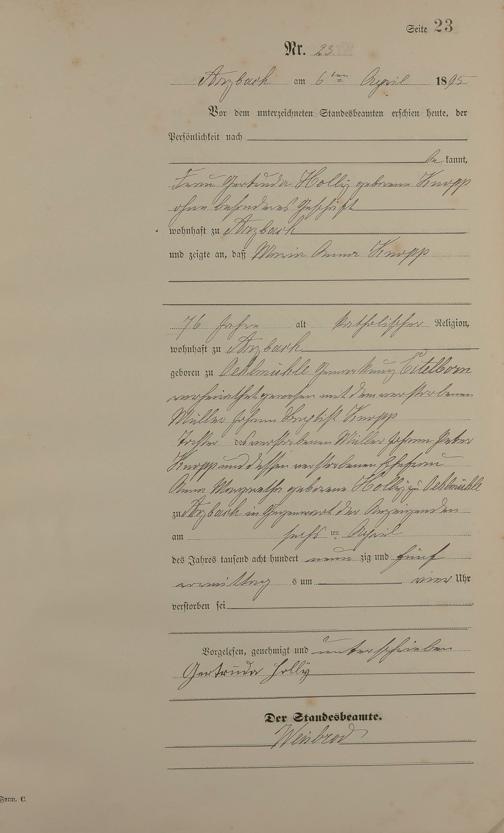 Seite 23
Nr. 23
Arzbach am 6ten April 1895
Vor dem unterzeichneten Standesbeamten erschien heute, der
Persönlichkeit nach
be kannt,
Frau Gertruda Holly geborene Knopp
ohne besonderes Geschäft
wohnhaft zu Arzbach
und zeigte an, daß Maria Anna Knopp
76 Jahre alt katholischer Religion,
wohnhaft zu Arzbach
geboren zu Oehlmühle Gemarkung Eitelborn
verheirathet gewesen mit dem verstorbenen
Müller Johann Baptist Knopp
Tochter des verstorbenen Müller Johann Peter
Knopp und dessen verstorbenen Ehefrau
Anna Margretha geborene Holly, zu Oehlmühle
zu Arzbach in Gegenwart der Anzeigenden
am sechsten April
des Jahres tausend acht hundert neun zig und fünf
vormittag s um vier Uhr
verstorben sei
Vorgelesen, genehmigt und unterschrieben
Gertruda Holly
Der Standesbeamte.
Weisbrod
Form. C.